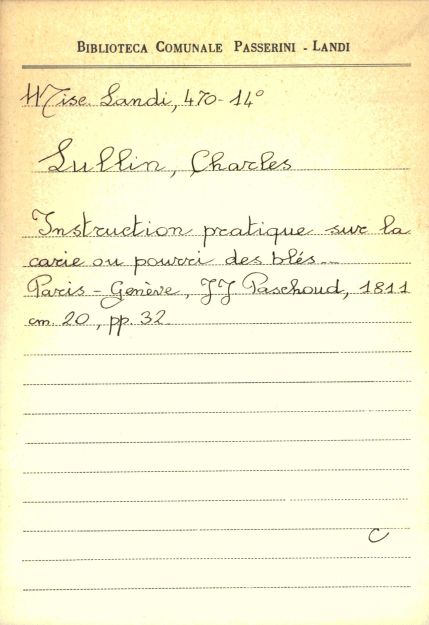 BIBLIOTECA COMUNALE PASSERINI - LANDI
Misc. Landi, 470-14°
Lullin, Charles
Instruction pratique sur la
carie ou pourri des blés...
Paris - Genève, JJ Paschoud, 1811
cm. 20, pp. 32
C